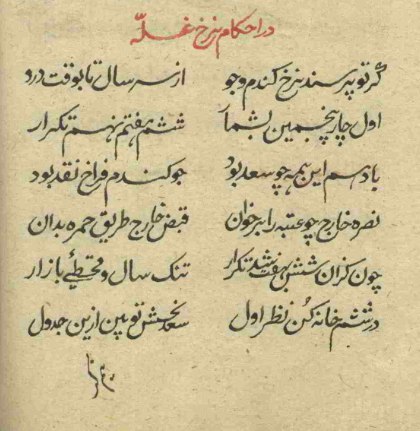 در احکام نرخ غله
گر تو پرسند نرخ کندم و جو از سر سال تا بوقت درو
اول چار پنجمین بشمار ششم هفتم نهم تکرار
با دهم این همه چو سعد بود جو کندم فراخ نقد بود
نصره خارج چو عتبه را برخوان قبض خارج طریق حمره بدان
چون کران شش هفت شد تکرار تنک سال و قحطئ بازار
در ششم خانه کن نظر اول سعد نحسش تو بین ازین جدول